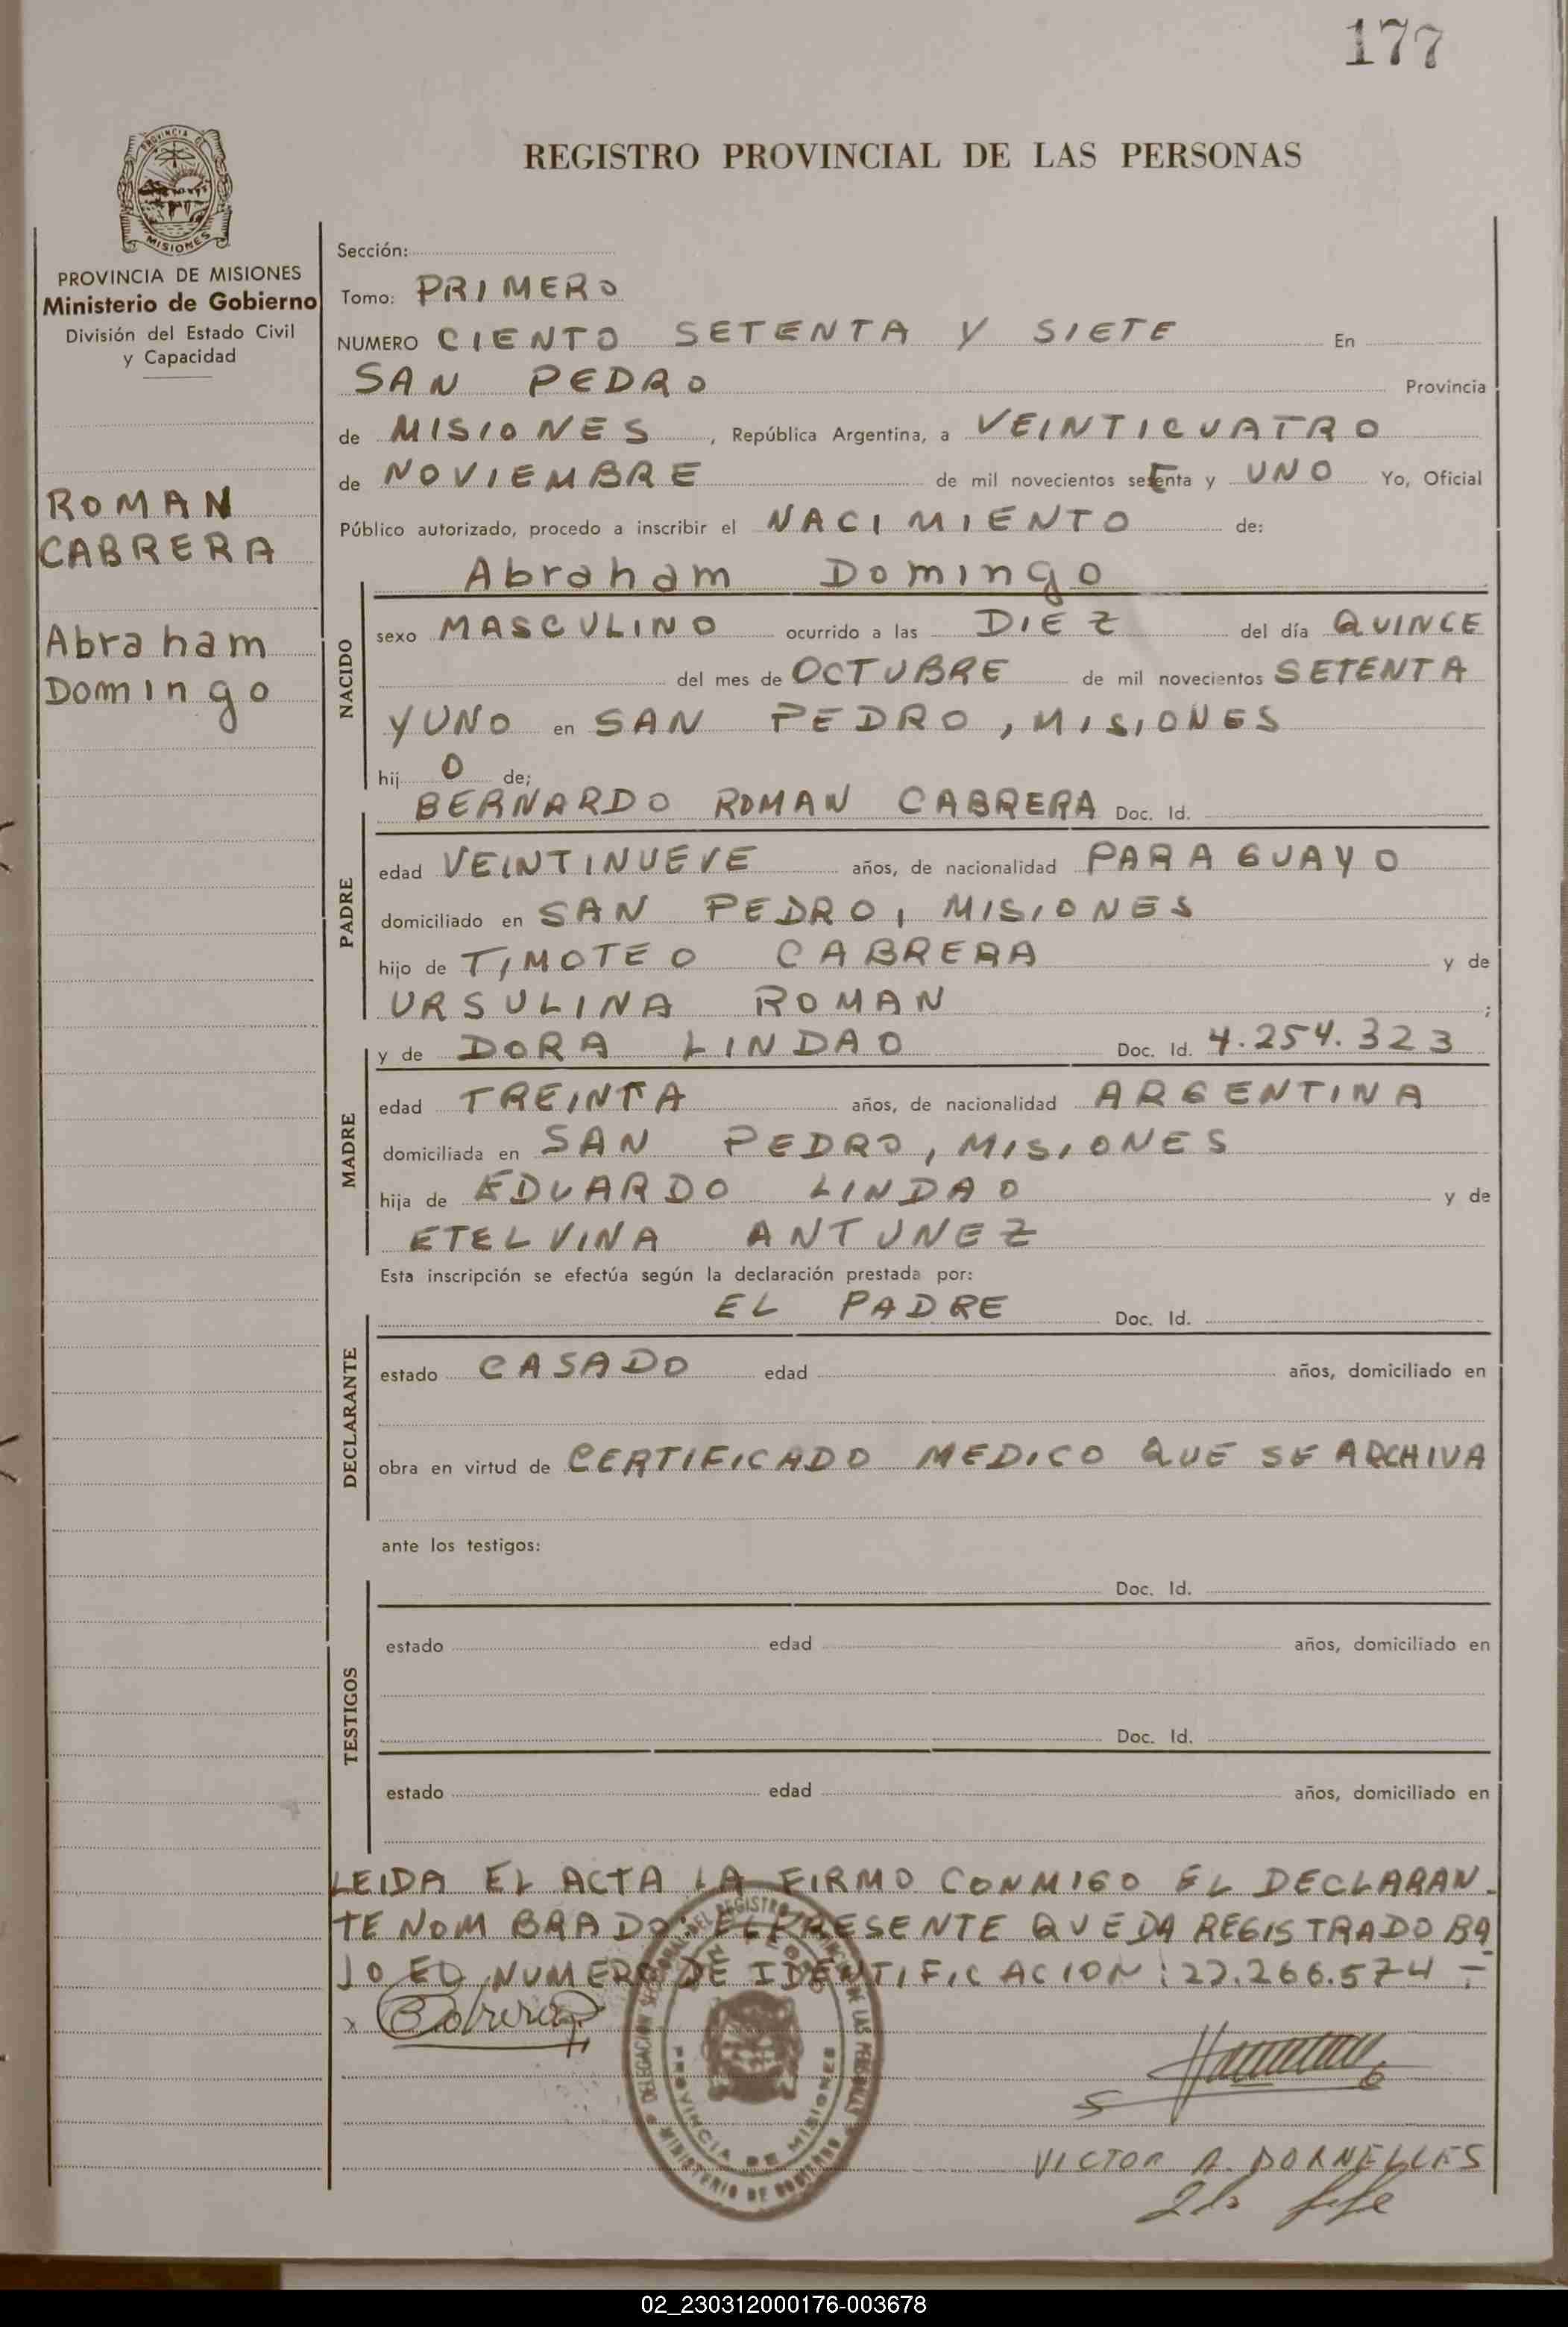 177
REGISTRO PROVINCIAL DE LAS PERSONAS
PROVINCIA DE MISIONES
Ministerio de Gobierno
División del Estado Civil
y Capacidad
ROMAN
CABRERA
Abraham
Domingo
Sección:
Tomo: PRIMERO
NUMERO CIENTO SETENTA Y SIETE En
SAN PEDRO Provincia
de MISIONES, República Argentina, a VEINTICUATRO
de NOVIEMBRE de mil novecientos setenta y UNO Yo, Oficial
Público autorizado, procedo a inscribir el NACIMIENTO de:
Abraham Domingo
NACIDO
sexo MASCULINO ocurrido a las DIEZ del día QUINCE
del mes de OCTUBRE de mil novecientos SETENTA
Y UNO en SAN PEDRO, MISIONES
hij O de;
BERNARDO ROMAN CABRERA Doc. Id.
PADRE
edad VEINTINUEVE años, de nacionalidad PARAGUAYO
domiciliado en SAN PEDRO, MISIONES
hijo de TIMOTEO CABRERA y de
URSULINA ROMAN ;
y de DORA LINDAO Doc. Id. 4.254.323
MADRE
edad TREINTA años, de nacionalidad ARGENTINA
domiciliada en SAN PEDRO, MISIONES
hija de EDUARDO LINDAO y de
ETELVINA ANTUNEZ
Esta inscripción se efectúa según la declaración prestada por:
EL PADRE Doc. Id.
DECLARANTE
estado CASADO edad años, domiciliado en
obra en virtud de CERTIFICADO MEDICO QUE SE ARCHIVA
ante los testigos:
Doc. Id.
TESTIGOS
estado edad años, domiciliado en
Doc. Id.
estado edad años, domiciliado en
LEIDA EL ACTA LA FIRMO CONMIGO EL DECLARAN-
TE NOMBRADO: EL PRESENTE QUEDA REGISTRADO BA-
JO EL NUMERO DE IDENTIFICACION: 22.266.574 -
x Cabrera
PROVINCIA DE MISIONES
MINISTERIO DE GOBIERNO
VICTOR A. DORNELLES
2do Jefe
02_230312000176-003678